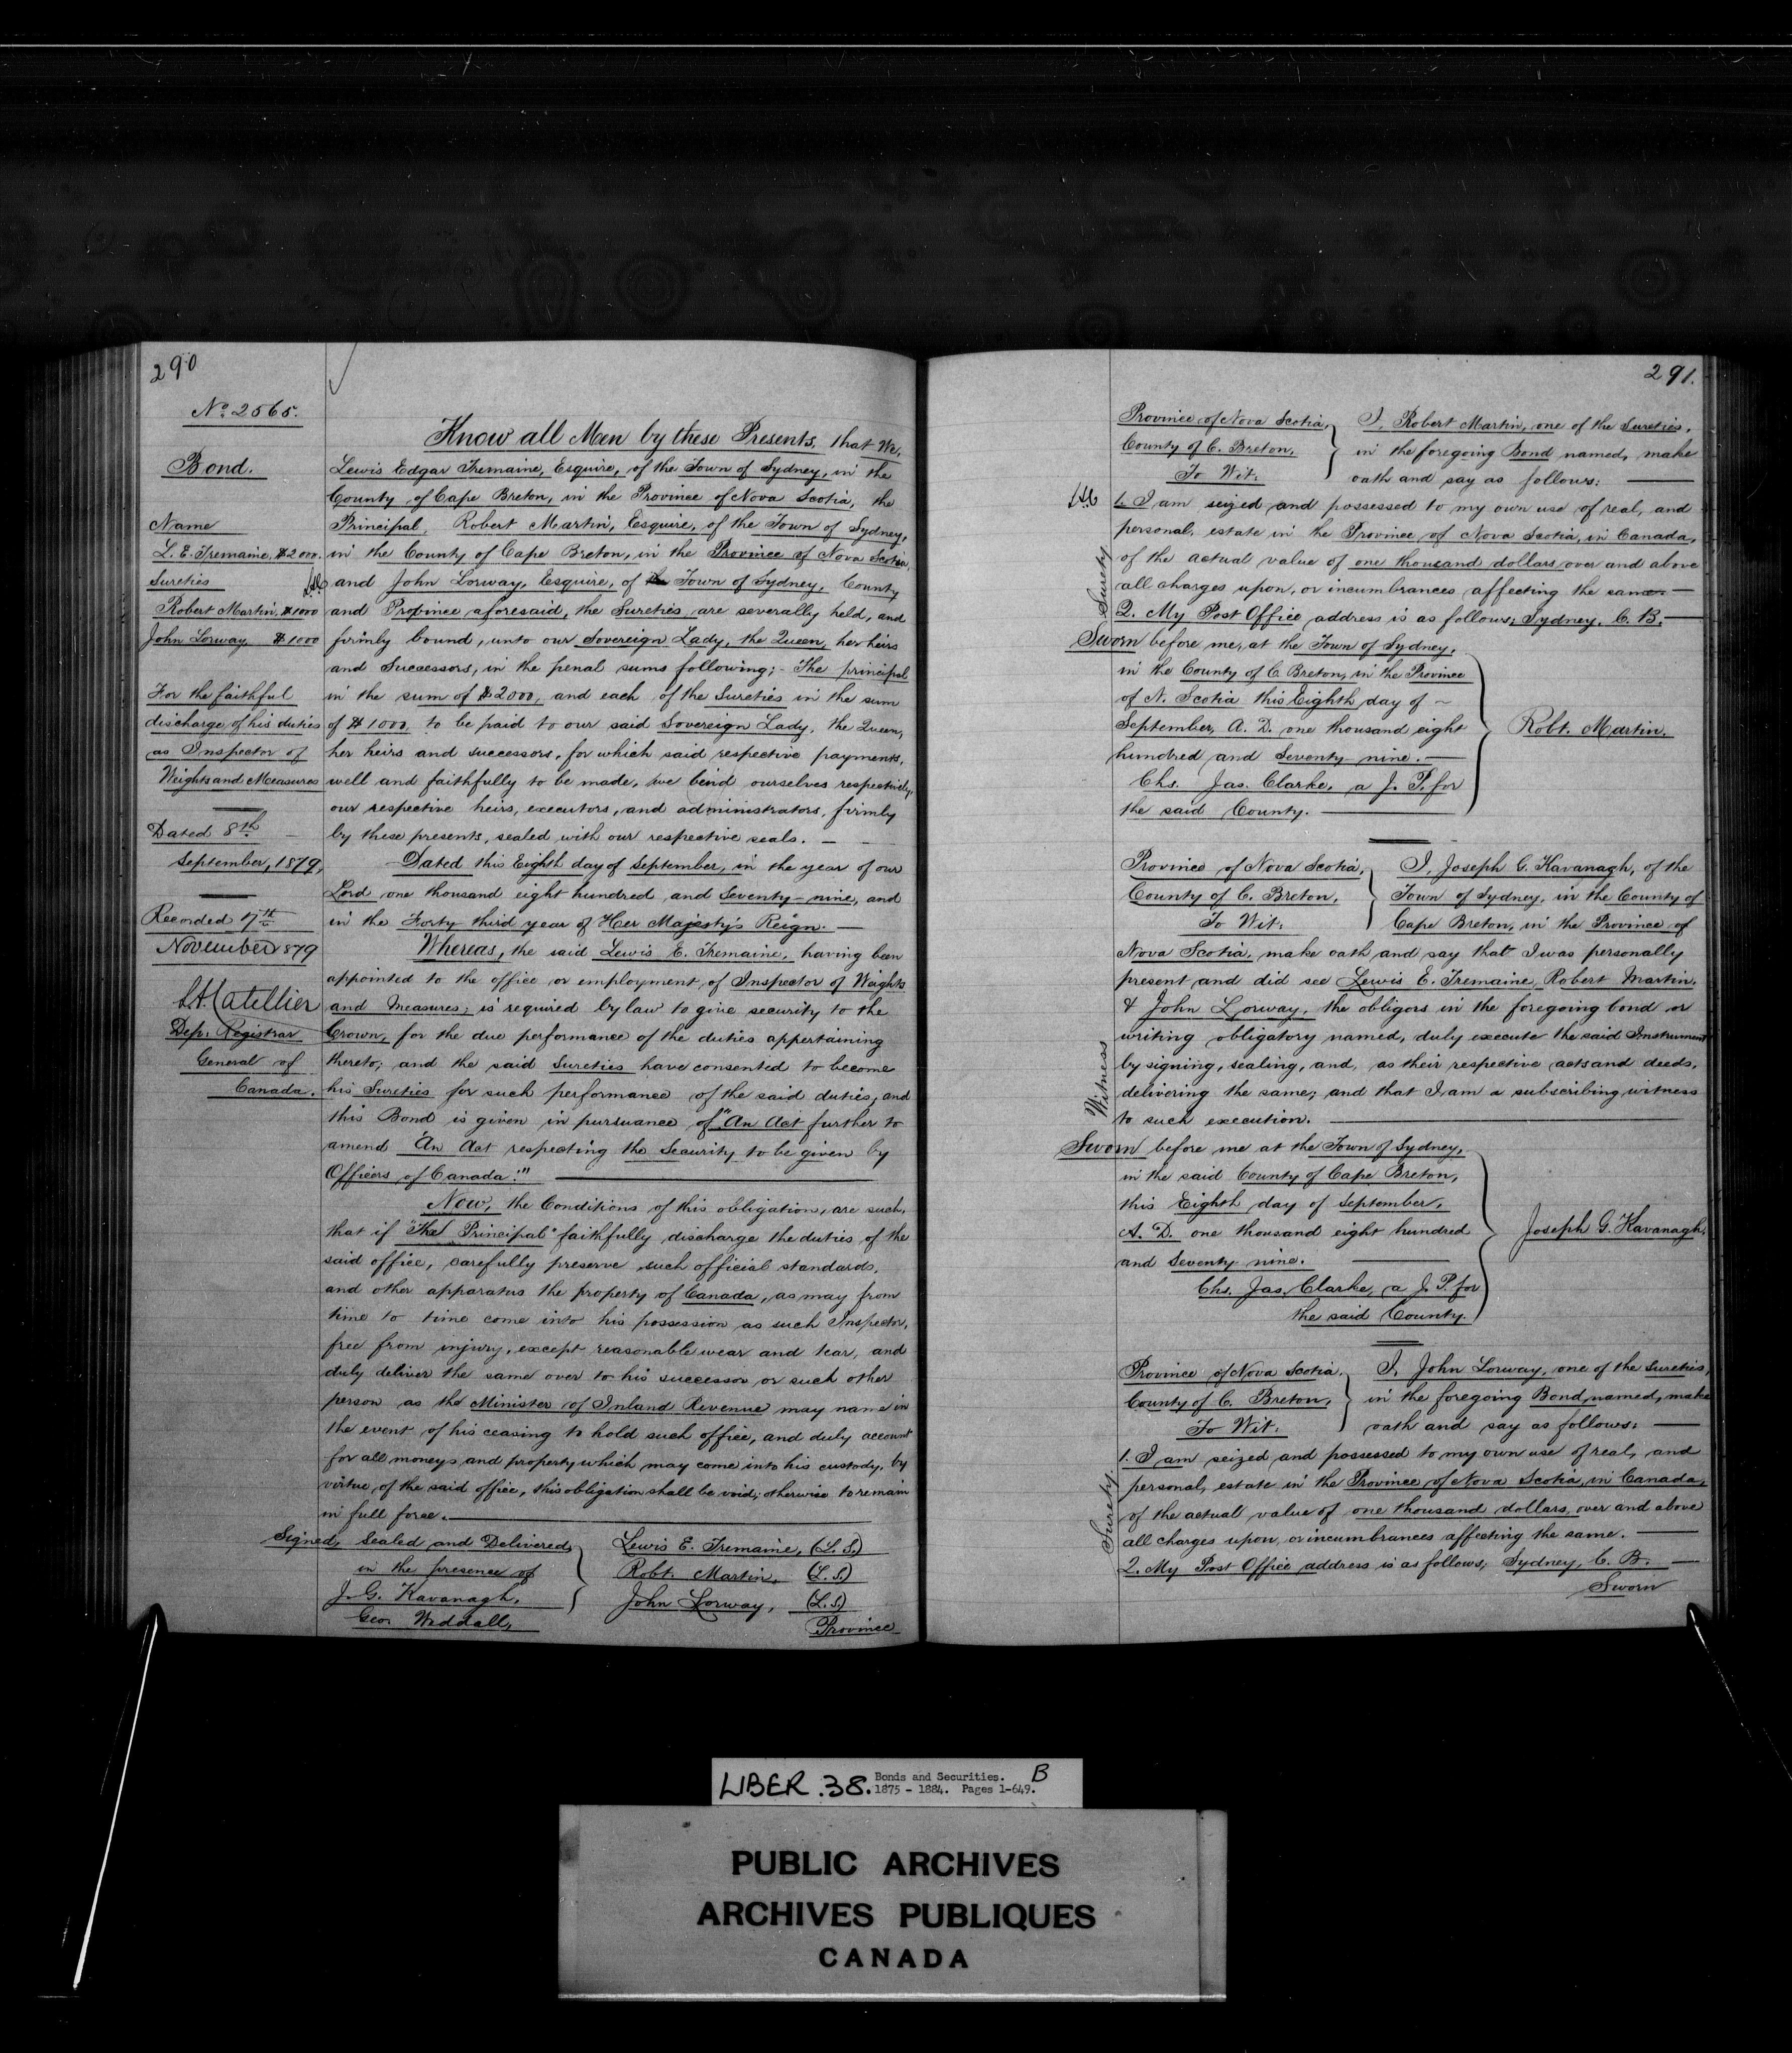 290
No. 2565.
Bond.
Name
L. E. Tremaine, $2000.
Sureties
Robert Martin, $1000
John Lorway $1000
For the faithful
discharge of his duties
as Inspector of
Weights and Measures
Dated 8th
September, 1879,
Recorded 17th
November 1879
L.A. Catellier
Dep. Registrar
General of
Canada.
Know all Men by these Presents, that We,
Lewis Edgar Tremaine, Esquire, of the Town of Sydney, in the
County of Cape Breton, in the Province of Nova Scotia, the
Principal, Robert Martin, Esquire, of the Town of Sydney,
in the County of Cape Breton, in the Province of Nova Scotia,
and John Lorway, Esquire, of the Town of Sydney, County
and Province aforesaid, the Sureties, are severally held, and
firmly bound, unto our Sovereign Lady, the Queen, her heirs
and Successors, in the penal sums following; - The principal
in the sum of $2000, and each of the Sureties in the sum
of $1000, to be paid to our said Sovereign Lady, the Queen,
her heirs and successors, for which said respective payments,
well and faithfully to be made, we bind ourselves respectively,
our respective heirs, executors, and administrators, firmly
by these presents, sealed with our respective seals. —
Dated this Eighth day of September, in the year of our
Lord one thousand eight hundred and Seventy-nine, and
in the Forty third year of Her Majesty's Reign. —
Whereas, the said Lewis E. Tremaine, having been
appointed to the office or employment of Inspector of Weights
and Measures; is required by law to give security to the
Crown, for the due performance of the duties appertaining
thereto; and the said Sureties have consented to become
his Sureties for such performance of the said duties; and
this Bond is given in pursuance of "An Act further to
amend "An Act respecting the Security to be given by
Officers of Canada."" —
Now, the Conditions of this obligation, are such,
that if "The Principal" faithfully discharge the duties of the
said office, carefully preserve such official standards,
and other apparatus the property of Canada, as may from
time to time come into his possession as such Inspector,
free from injury, except reasonable wear and tear, and
duly deliver the same over to his successor or such other
person as the Minister of Inland Revenue may name in
the event of his ceasing to hold such office, and duly account
for all moneys and property which may come into his custody, by
virtue of the said office, this obligation shall be void; otherwise to remain
in full force. —
Signed, Sealed and Delivered,
in the presence of
J. G. Kavanagh,
Geo. Weddall,
Lewis E. Tremaine, (L.S.)
Robt. Martin, (L.S.)
John Lorway, (L.S.)
Province
291.
Province of Nova Scotia,
County of C. Breton,
To Wit:
I, Robert Martin, one of the Sureties,
in the foregoing Bond named, make
oath and say as follows: —
1. I am seized and possessed to my own use of real, and
personal, estate in the Province of Nova Scotia, in Canada,
of the actual value of one thousand dollars over and above
all charges upon, or incumbrances affecting the same. —
2. My Post Office address is as follows; Sydney, C. B. —
Surety
Sworn before me, at the Town of Sydney,
in the County of C. Breton, in the Province
of N. Scotia this Eighth day of ~
September, A. D. one thousand eight
hundred and Seventy-nine. —
Chs. Jas. Clarke, a J. P. for
the said County. —
Robt. Martin.
Province of Nova Scotia,
County of C. Breton,
To Wit:
I, Joseph G. Kavanagh, of the
Town of Sydney, in the County of
Cape Breton, in the Province of
Nova Scotia, make oath and say that I was personally
present and did see Lewis E. Tremaine, Robert Martin,
& John Lorway, the obligors in the foregoing bond or
writing obligatory named, duly execute the said Instrument
by signing, sealing, and, as their respective acts and deeds,
delivering the same; and that I am a subscribing witness
to such execution. —
Witness
Sworn before me at the Town of Sydney,
in the said County of Cape Breton,
this Eighth day of September,
A. D. one thousand eight hundred
and Seventy nine. —
Chs. Jas. Clarke, a J. P. for
the said County.
Joseph G. Kavanagh,
Province of Nova Scotia,
County of C. Breton,
To Wit:
I, John Lorway, one of the Sureties,
in the foregoing Bond, named, make
oath and say as follows: —
1. I am seized and possessed to my own use of real, and
personal, estate in the Province of Nova Scotia, in Canada,
of the actual value of one thousand dollars, over and above
all charges upon, or incumbrances affecting the same. —
2. My Post Office address is as follows; Sydney, C. B. —
Surety
Sworn
LIBER. 38. Bonds and Securities. B
1875 - 1884. Pages 1-649.
PUBLIC ARCHIVES
ARCHIVES PUBLIQUES
CANADA